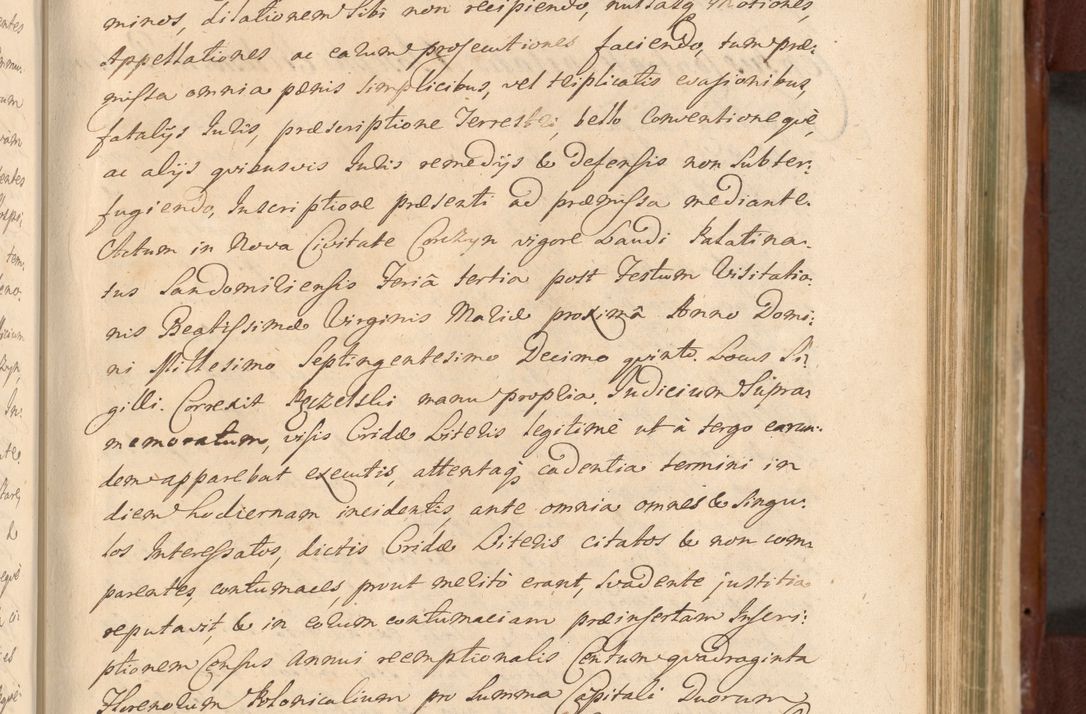 minos, dilationem sibi non recipiendo, nullasq Motiones,
Appellationes ac earum prosecutiones faciendo, tum præ:
missa omnia pœnis simplicibus, vel triplicatis evasionibus,
fatalijs Juris, præscriptione Terrestri, bello Conventioneqvè,
ac alijs qvibusvis Juris remedijs & defensis non subter:
fugiendo, Inscriptione præsenti ad præmissa mediante.
Actum in Nova Civitate Corczyn vigore Laudi Palatina:
tus Sandomiriensis Feriâ tertia post Festum Visitatio:
nis Beatissimæ Virginis Mariæ proximâ Anno Domi:
ni Millesimo Septingentesimo Decimo qvinto. Locus Si:
gilli. Correxit manu propria. Judicium Supra:
memoratum, visis Cridæ Literis legitimè ut à tergo earun:
dem apparebat executis, attentaq cadentia termini in
diem hodiernam incidentis, ante omnia omnes & singu:
los Interessatos, dictis Cridæ Literis citatos & non com:
parentes, contumaces, prout meritò erant, svadente justitia
reputavit, & in eorum contumaciam præinsertam Inscri:
ptionem Census annui reemptionalis Centum qvadraginta
Florenorum Polonicalium pro Summa Capitali Duorum